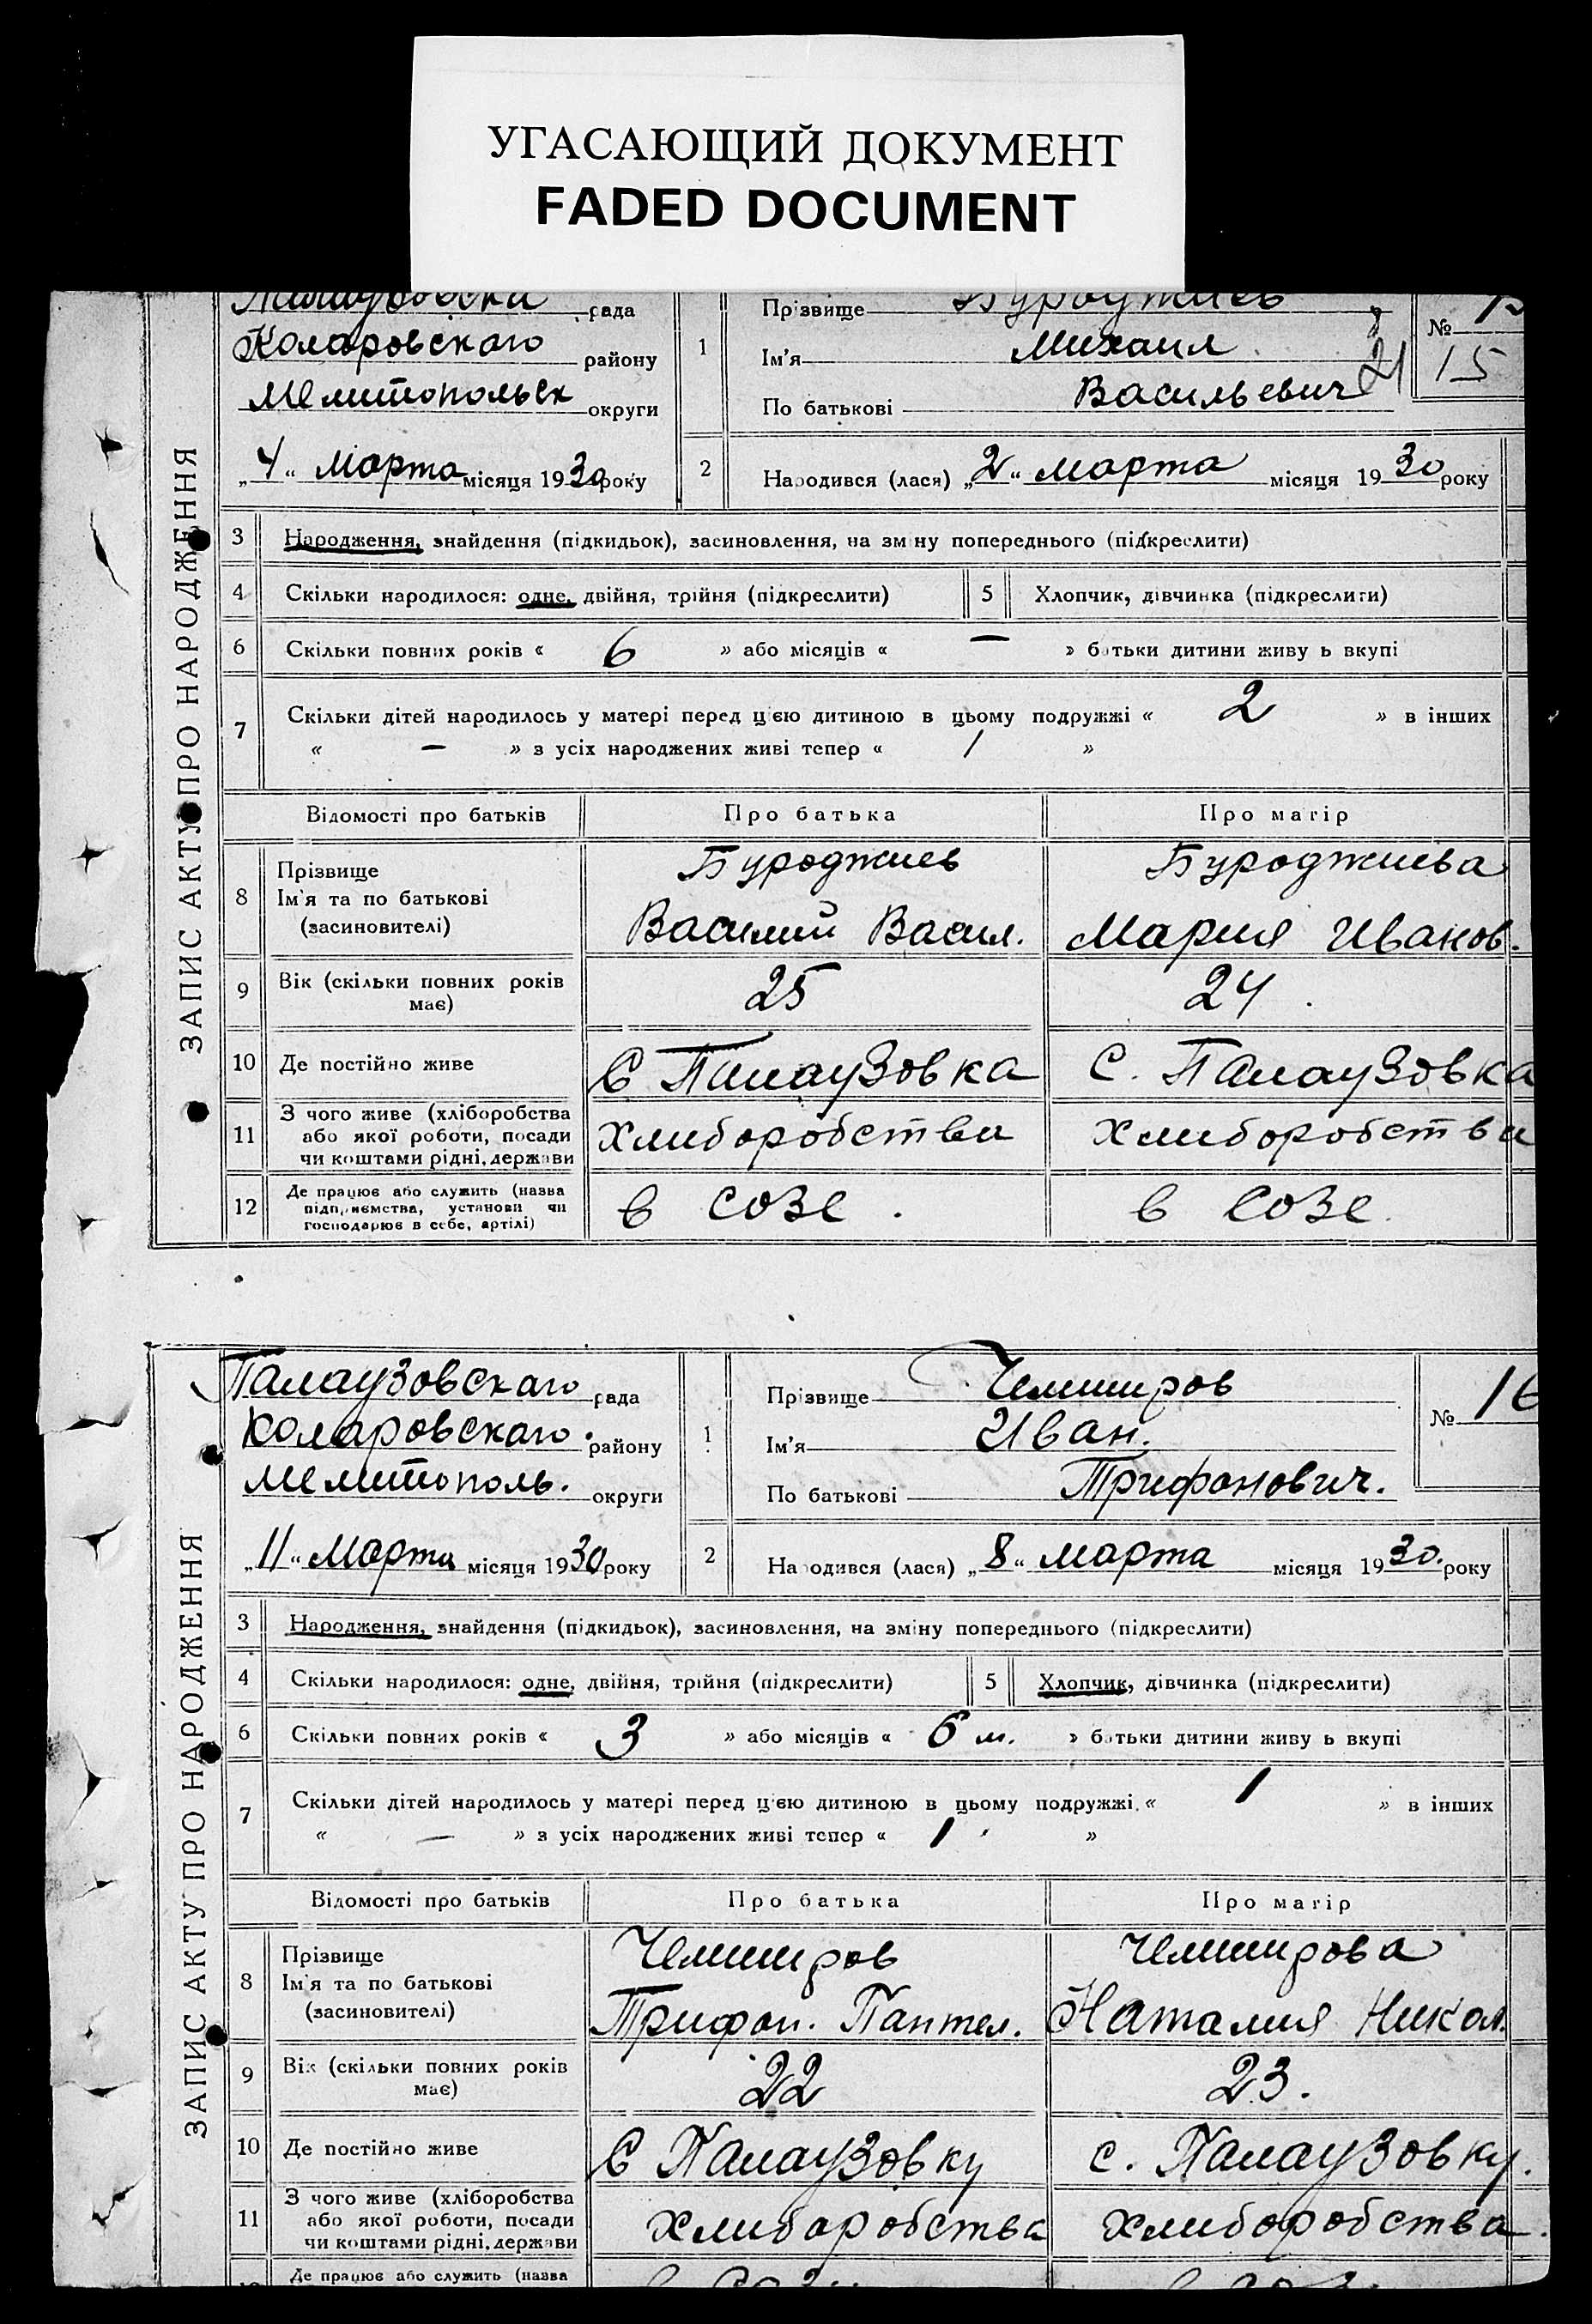 УГАСАЮЩИЙ ДОКУМЕНТ
FADED DOCUMENT
ЗАПИС АКТУ ПРО НАРОДЖЕННЯ
рада
Коларовскаго району
Мелитопольск округи
„4“ Марта місяця 1930 року
1
Прізвище Буроджиев
Ім'я Михаил
По батькові Васильевич
21
№
15
2
Народився (лася) „2“ марта місяця 1930 року
3 Народження, знайдення (підкидьок), засиновлення, на зміну попереднього (підкреслити)
4 Скільки народилося: одне, двійня, трійня (підкреслити) 5 Хлопчик, дівчинка (підкреслити)
6 Скільки повних років « 6 » або місяців « — » батьки дитини живуть вкупі
7 Скільки дітей народилось у матері перед цією дитиною в цьому подружжі « 2 » в інших
« — » з усіх народжених живі тепер « 1 »
Відомості про батьків Про батька Про матір
8 Прізвище
Ім'я та по батькові
(засиновителі)
Буроджиев
Василий Васил.
Буроджиева
Мария Иванов.
9 Вік (скільки повних років
має)
25 24
10 Де постійно живе С Палаузовка С. Палаузовка
11 З чого живе (хліборобства
або якої роботи, посади
чи коштами рідні, держави
Хлиборобства Хлиборобства
12 Де працює або служить (назва
підприємства, установи чи
господарює в себе, артілі)
в созе. в созе.
ЗАПИС АКТУ ПРО НАРОДЖЕННЯ
Палаузовскаго рада
Коларовскаго району
Мелитополь. округи
„11“ Марта місяця 1930 року
1
Прізвище Челиширов
Ім'я Иван.
По батькові Трифонович.
№ 16
2
Народився (лася) „8“ марта місяця 1930. року
3 Народження, знайдення (підкидьок), засиновлення, на зміну попереднього (підкреслити)
4 Скільки народилося: одне, двійня, трійня (підкреслити) 5 Хлопчик, дівчинка (підкреслити)
6 Скільки повних років « 3 » або місяців « 6 м. » батьки дитини живуть вкупі
7 Скільки дітей народилось у матері перед цією дитиною в цьому подружжі « 1 » в інших
« — » з усіх народжених живі тепер « 1 »
Відомості про батьків Про батька Про матір
8 Прізвище
Ім'я та по батькові
(засиновителі)
Челиширов
Трифон. Пантел.
Челиширова
Наталия Никол.
9 Вік (скільки повних років
має)
22 23.
10 Де постійно живе С Палаузовку с. Палаузовку.
11 З чого живе (хліборобства
або якої роботи, посади
чи коштами рідні, держави
Хлиборобства Хлиборобства.
Де працює або служить (назва